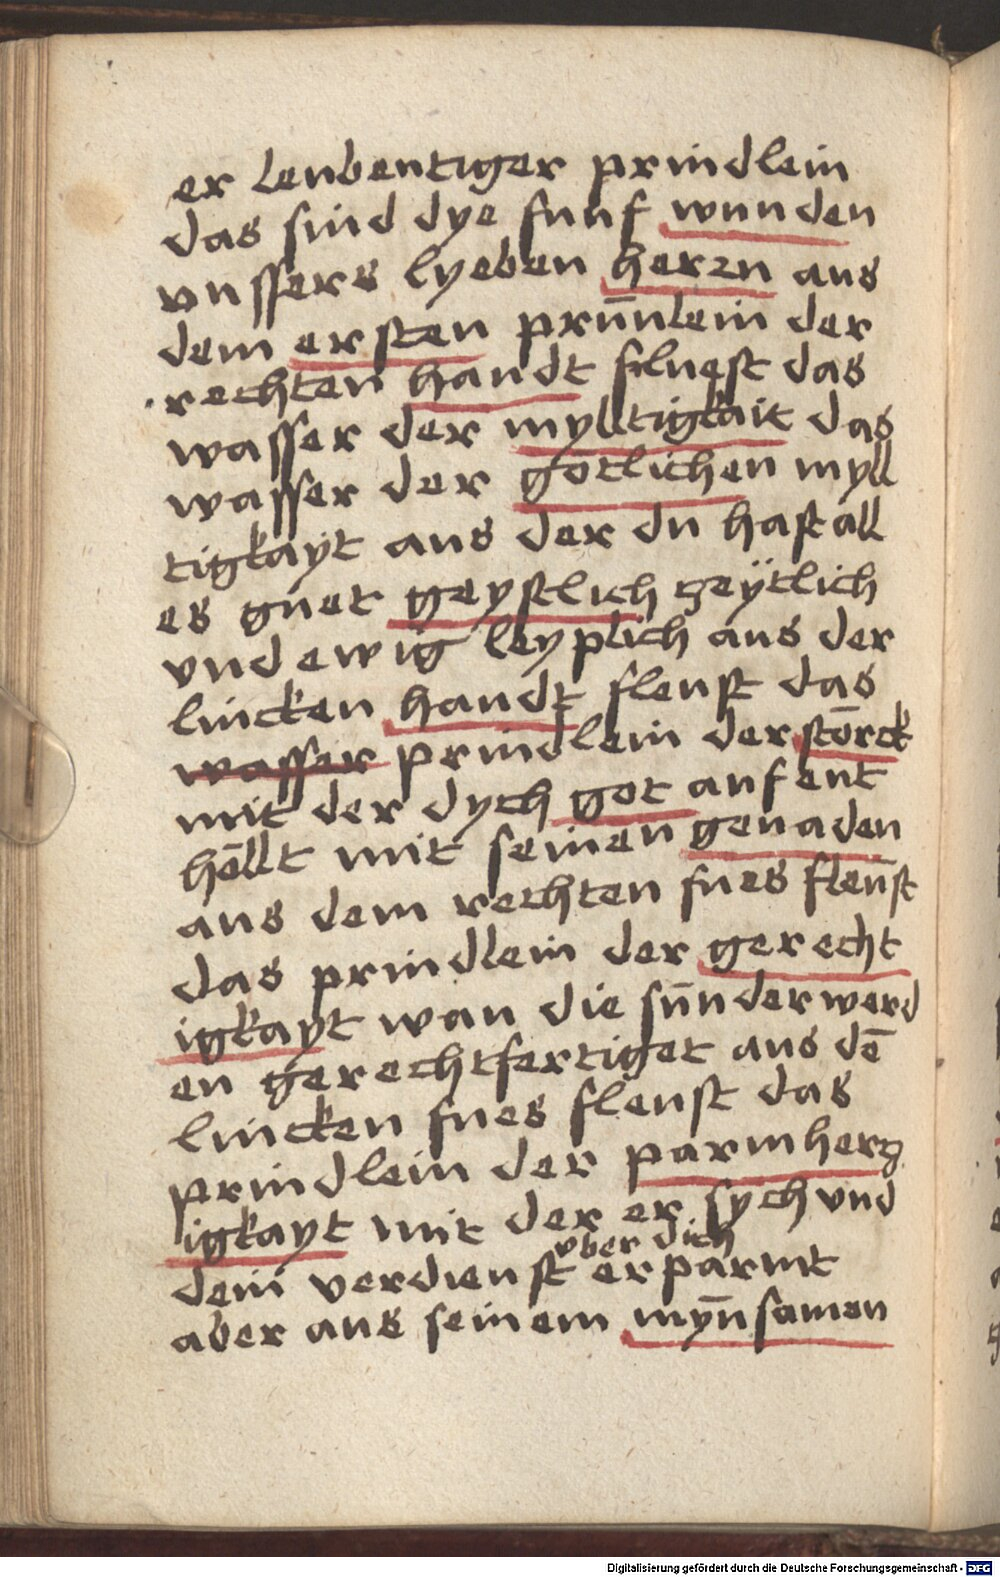 er lenbentiger prindlein
das sind dye funf wunden
vnssers lyeben herzn aus
dem ersten prūnlein der
rechten handt flust das
wasser der mylltigkait das
wasser der gotlichen myll
tigkaÿt aus der du hast all
es guet geystlich zeÿtlich
vnd ewig leyplich aus der
lincken handt fleust das
wasser prindlein der störck
mit der dych got aufent
hellt mit seinen genaden
aus dem rechten fues fleust
das prindlein der gerecht
igkayt wan die sūnder werd
en gerechtfertiget aus dē
lincken fues fleust das
prindlein der parmherz
igkayt mit der er sych vnd
vber dich
dein verdienst erparmt
aber aus seinem myn̄samen
Digitalisierung gefördert durch die Deutsche Forschungsgemeinschaft - DFG